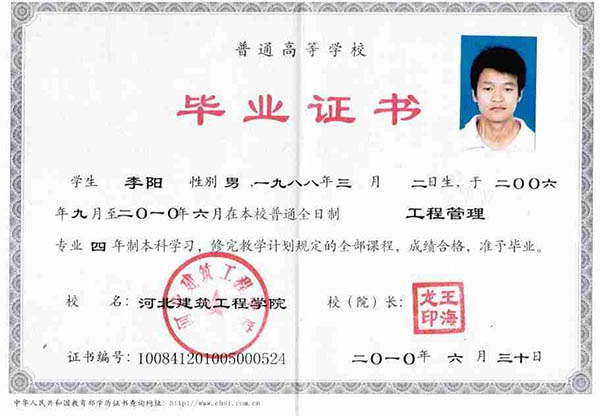 普通高等学校
毕业证书
学生 李阳 性别 男 ,一九八八年 三 月 二日生，于 二〇〇六
年 九 月至二〇一〇年 六 月在本校普通全日制 工程管理
专业 四 年制本科学习，修完教学计划规定的全部课程，成绩合格，准予毕业。
校 名：河北建筑工程学院
河北建筑工程学院
校（院）长：
王海龙印
证书编号：100841201005000524
二〇一〇年 六 月 三十日
中华人民共和国教育部学历证书查询网址：http://www.chsi.com.cn